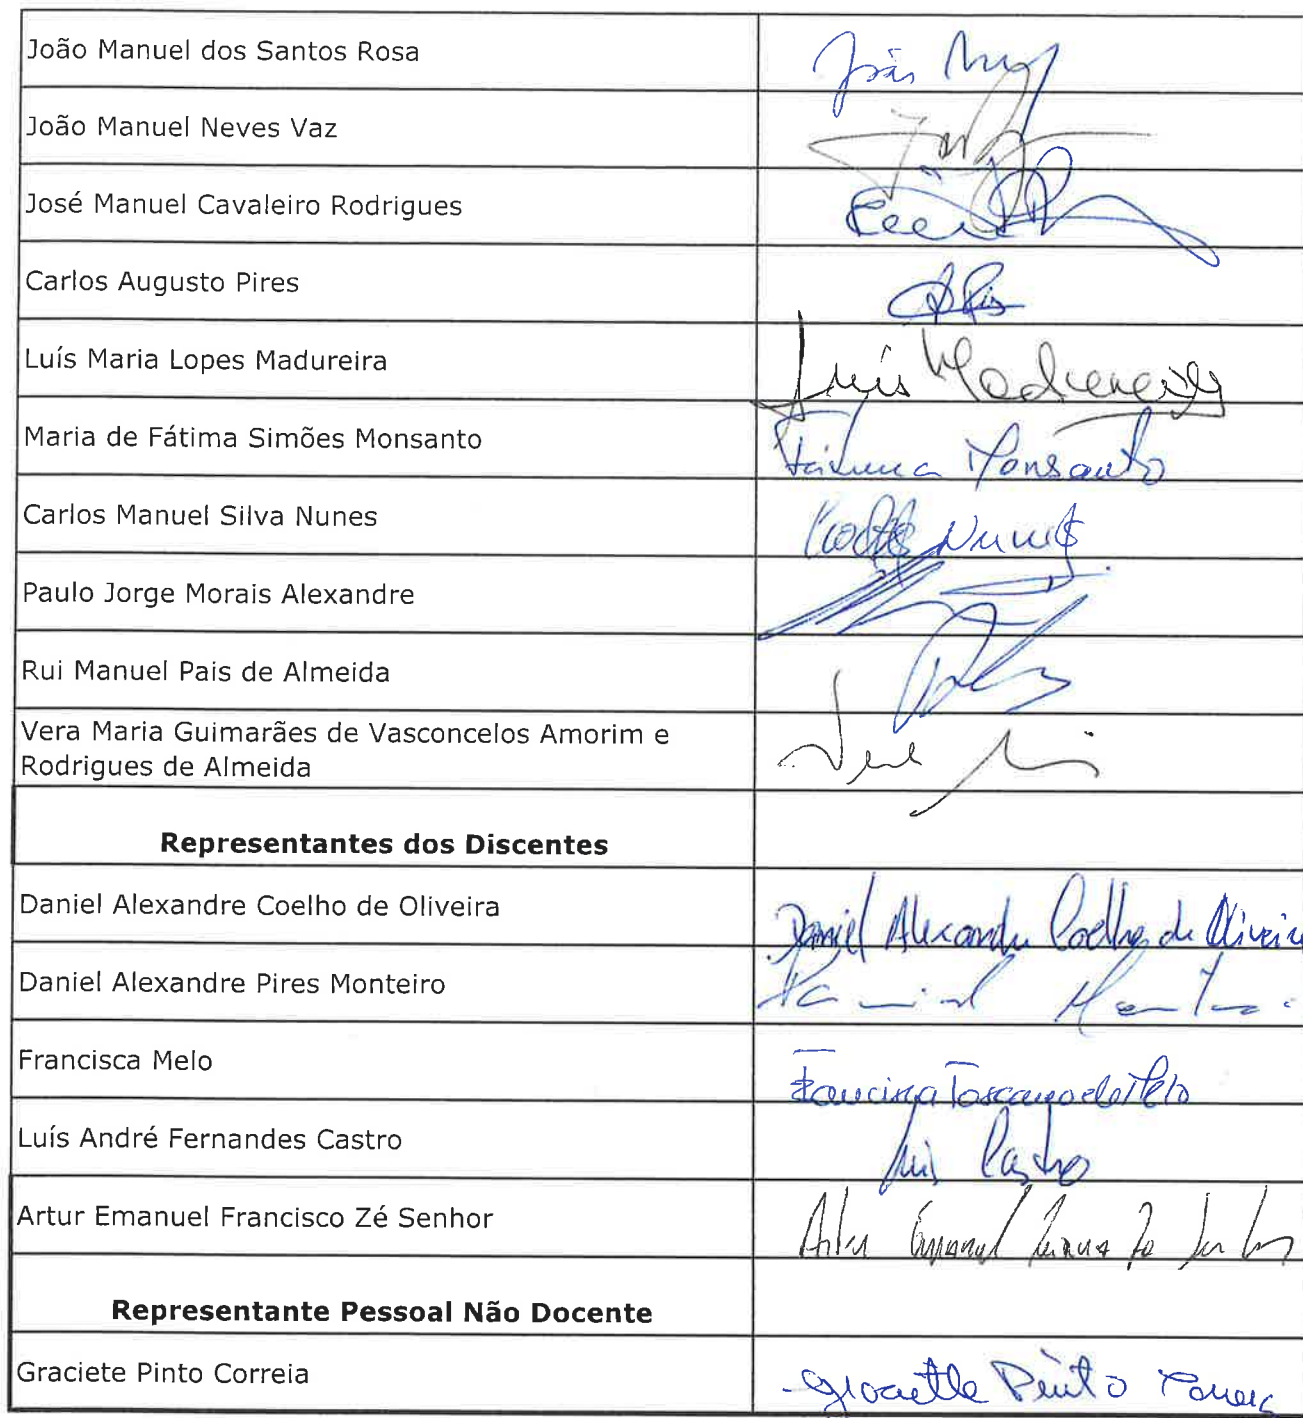 João Manuel dos Santos Rosa
João
João Manuel Neves Vaz
José Manuel Cavaleiro Rodrigues
Carlos Augusto Pires
Luís Maria Lopes Madureira
Luís Madureira
Maria de Fátima Simões Monsanto
Fátima Monsanto
Carlos Manuel Silva Nunes
Carlos Nunes
Paulo Jorge Morais Alexandre
Rui Manuel Pais de Almeida
Vera Maria Guimarães de Vasconcelos Amorim e
Rodrigues de Almeida
Vera
Representantes dos Discentes
Daniel Alexandre Coelho de Oliveira
Daniel Alexandre Coelho de Oliveira
Daniel Alexandre Pires Monteiro
Daniel Monteiro
Francisca Melo
Francisca Toscano de Melo
Luís André Fernandes Castro
Luís Castro
Artur Emanuel Francisco Zé Senhor
Artur Emanuel
Representante Pessoal Não Docente
Graciete Pinto Correia
Graciette Pinto Correia